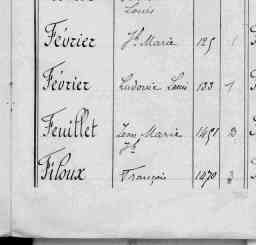 Louis
Février Jh Marie 125 1
Février Ludovic Louis 133 1
Feuillet Jean Marie 1451 3
Jh
Filoux François 1470 3